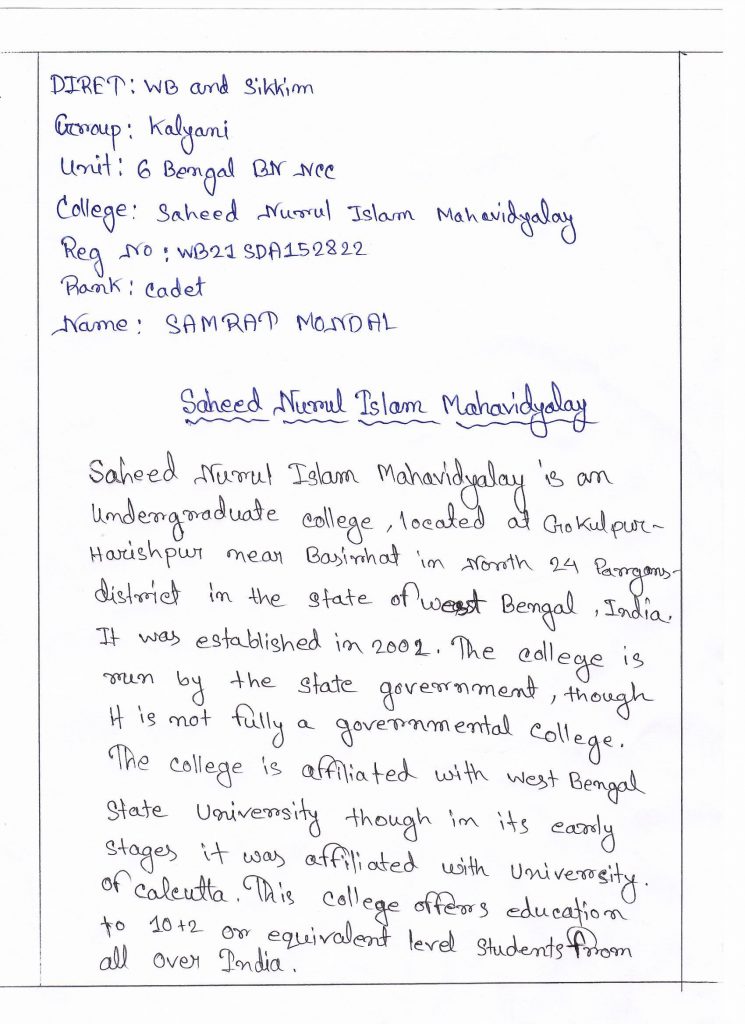 DIRET: WB and Sikkim
Group: Kalyani
Unit: 6 Bengal BN NCC
College: Saheed Nurul Islam Mahavidyalay
Reg No: WB21SDA152822
Rank: Cadet
Name: SAMRAT MONDAL
Saheed Nurul Islam Mahavidyalay
Saheed Nurul Islam Mahavidyalay is an
Undergraduate college, located at Gokulpur-
Harishpur near Basirhat in North 24 Pargans-
district in the state of west Bengal, India.
It was established in 2002. The college is
run by the state government, though
it is not fully a governmental college.
The college is affiliated with west Bengal
State University though in its early
stages it was affiliated with University.
of Calcutta. This college offers education
to 10+2 or equivalent level students from
all over India.